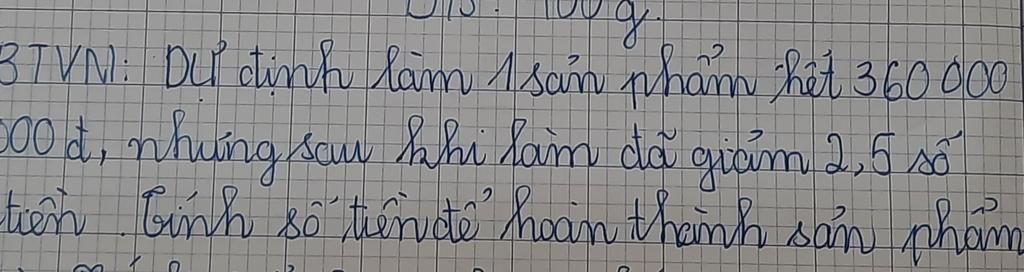 Đ/S: 100 g.
BTVN: Dự định làm 1 sản phẩm hết 360 000
000 đ, nhưng sau khi làm đã giảm 2,5 số
tiền. Tính số tiền để hoàn thành sản phẩm